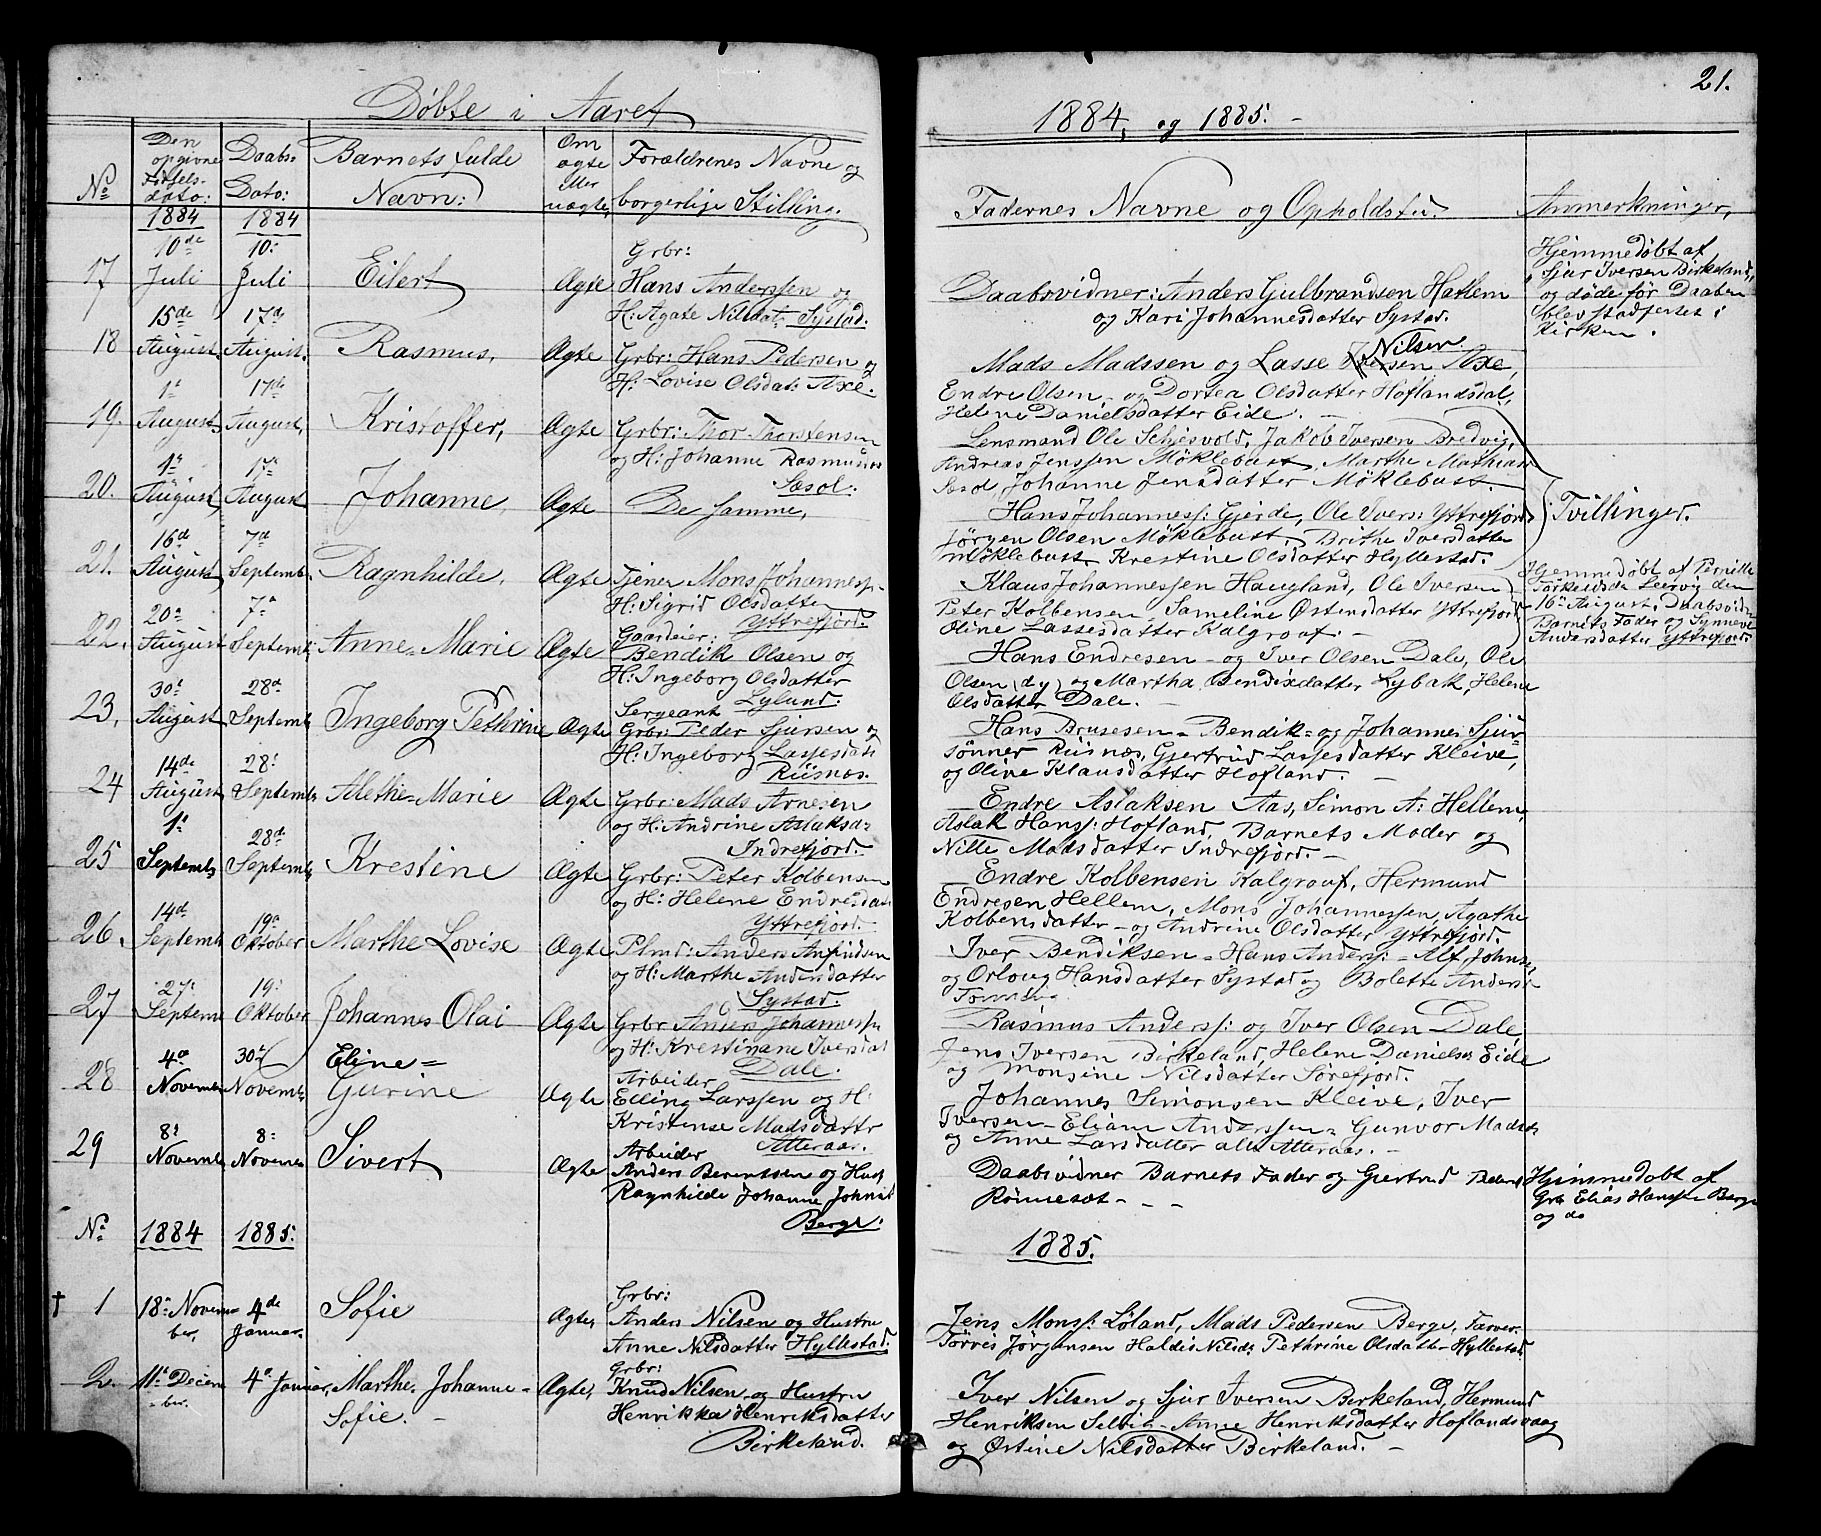 21.
Døbte i Aaret
1884, og 1885.
No
Den opgivne Fødsels-dato:
Daabs-Dato:
Barnets fulde Navn:
Om ægte eller uægte,
Forældrenes Navne og borgerlige Stilling.
Faddernes Navne og Opholdsted.
Anmerkninger,
1884 1884
17 10de Juli 10: Juli Eilert Ægte Grbr:
Hans Anderssen og
H: Agate Nilsdat: Systad:
Daabsvidner: Anders Gulbrandsen Hatlem
og Kari Johannesdatter Systad.
Hjemmedøbt af
Sjur Iversen Birkeland,
og døde før Daaben
blev stadfestet i
Kirken.
18 15de August. 17de August. Rasmus, Ægte Grbr: Hans Pedersen og
H: Lovise Olsdat: Axe.
Mads Madssen og Lasse Nilsen Axe,
Endre Olsen og Dortea Olsdatter Hoflandsdal,
Helene Danielsdatter Eide. -
19. 1s August. 17de August, Kristoffer, Ægte Grbr: Thor Thorstensen
og H: Johanne Rasmusds
Sæsol:
Lensmand Ole Schjesvold, Jakob Iversen Bredvig,
Andreas Jenssen Møklebust, Marthe Mathias
Sæsol Johanne Jensdatter Møklebust.
20. 1s August 17de August Johanne, Ægte De samme,
Hans Johanness: Gjerde, Ole Ivers: Yttrefjord
Jørgen Olsen Møklebust, Brithe Iversdatter
Møklebust Krestine Olsdatter Hyllestad.
Tvillinger.
21. 16de August, 7de Septemb. Ragnhilde, Ægte Tjener Mons Johannessp.
H: Sigrid Olsdatter
Yttrefjord.
Klaus Johannessen Haugland, Ole Iversen
Peter Kolbensen, Sameline Østensdatter Yttrefjord,
Oline Lassesdatter Kalgraaf. -
Hjemmedøbt af Pernille
Torkeldsd. Leervig den
16de August, Daabsvidn:
Barnets Fader og Synneve
Andersdatter Yttrefjord.
22. 20de August 7de Septemb: Anne-Marie Ægte Gaardeier:
Bendik Olsen og
H: Ingeborg Olsdatter
Lylund.
Hans Endresen - og Iver Olsen Dale, Ole
Olsen (dy) og Martha Bendixdatter Lybak, Helene
Olsdatter Dale. -
23, 30te August 28de Septemb Ingeborg Pethrine Ægte Sergeant
Grbr: Peder Sjursen og
H: Ingeborg Lassesdat:
Riisnæs.
Hans Brusesen - Bendik - og Johannes Sjur-
sønner Riisnæs, Gjertrud Lassesdatter Kleive,
og Oline Klausdatter Hofland. -
24 14de August 28: Septemb Alethe-Marie Ægte Grbr: Mads Arnesen
og H: Andrine Aslaksd:
Indrefjord.
Endre Aslaksen Aas, Simon A: Hellem,
Aslak Hanss: Hofland, Barnets Moder og
Nille Madsdatter Indrefjord. -
25 1s Septemb 28de Septemb, Krestine Ægte Grbr: Peter Kolbensen
og H: Helene Endresdat
Yttrefjord.
Endre Kolbensen Kalgraaf, Hermund
Endresen Hellem, Mons Johannessen, Agathe
Kolbensdatter - og Andrine Olsdatter Yttrefjord.
26. 14de Septemb 19de Oktober Marthe Lovise Ægte Plmd: Anders Anfindsen
og H: Marthe Andersdatter
Systad.
Iver Bendiksen - Hans Anderss: - Alf Johns:
og Orloug Hansdatter Systad og Bolette Andersd
27 27: Septemb 19: Oktober Johannes Olai Ægte Grbr Anders Johannessen
og H: Krestinane Iversdat
Dale.
Rasmus Anderss: og Iver Olsen Dale,
Jens Iversen Birkeland, Helene Danielsd: Eide
og Monsine Nilsdatter Sørefjord.
28 4de Novemb 30te Novemb, Eline-
Gurine Ægte Arbeider
Elling Larssen og H:
Kristense Madsdattr
Atteraas.
Johannes Simonsen Kleive, Iver
Iversen - Eliam Anderssen - Gunvor Madsd:
og Anne Larsdatter alle Atteraas. -
29 8: Novemb 8: Novemb Sivert Ægte Arbeider
Anders Berentsen og Hust
Ragnhilde Johanne Johnsd
Berge.
Daabsvidner Barnets Fader og Gjertrud
Rønneset - - -
Hjemmedøbt af
Grb Elias Hanssen Berge
og do
No 1884 1885: 1885.
† 1 18: Novem-
ber, 4de Januar. Sofie Ægte, Grbr:
Anders Nilsen og Hustru
Anne Nilsdatter Hyllestad.
Jens Monss: Løland, Mads Pedersen Berge, Farver
Torvis Jørgensen Haldis Nilsd: Pethrine Olsdatter Hyllestad.
2. 11te Decem-
ber. 4de Januar, Marthe Johanne-
Sofie. - Ægte, Grbr:
Knud Nilsen og Hustru
Henrikka Henriksdatter
Birkeland.
Iver Nilsen og Sjur Iversen Birkeland, Hermund
Henriksen Selvik - Anne Henriksdatter Hoflandsvaag
og Østine Nilsdatter Birkeland. -